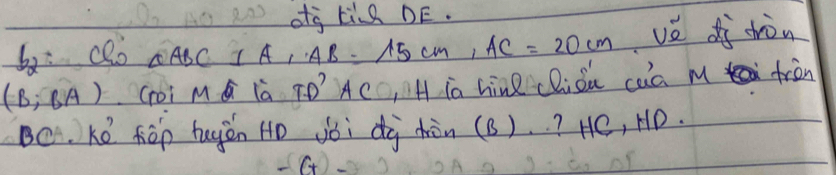 đg kính DE.
b2: Cho △ABC ⊥ A, AB = 15 cm, AC = 20 cm. Vẽ đg tròn
(B; BA). Gọi M là TĐ' AC, H là hình chiếu của M trên
BC. Kẻ tiếp tuyến HD với đg tròn (B). ? HC, HD.
- G -